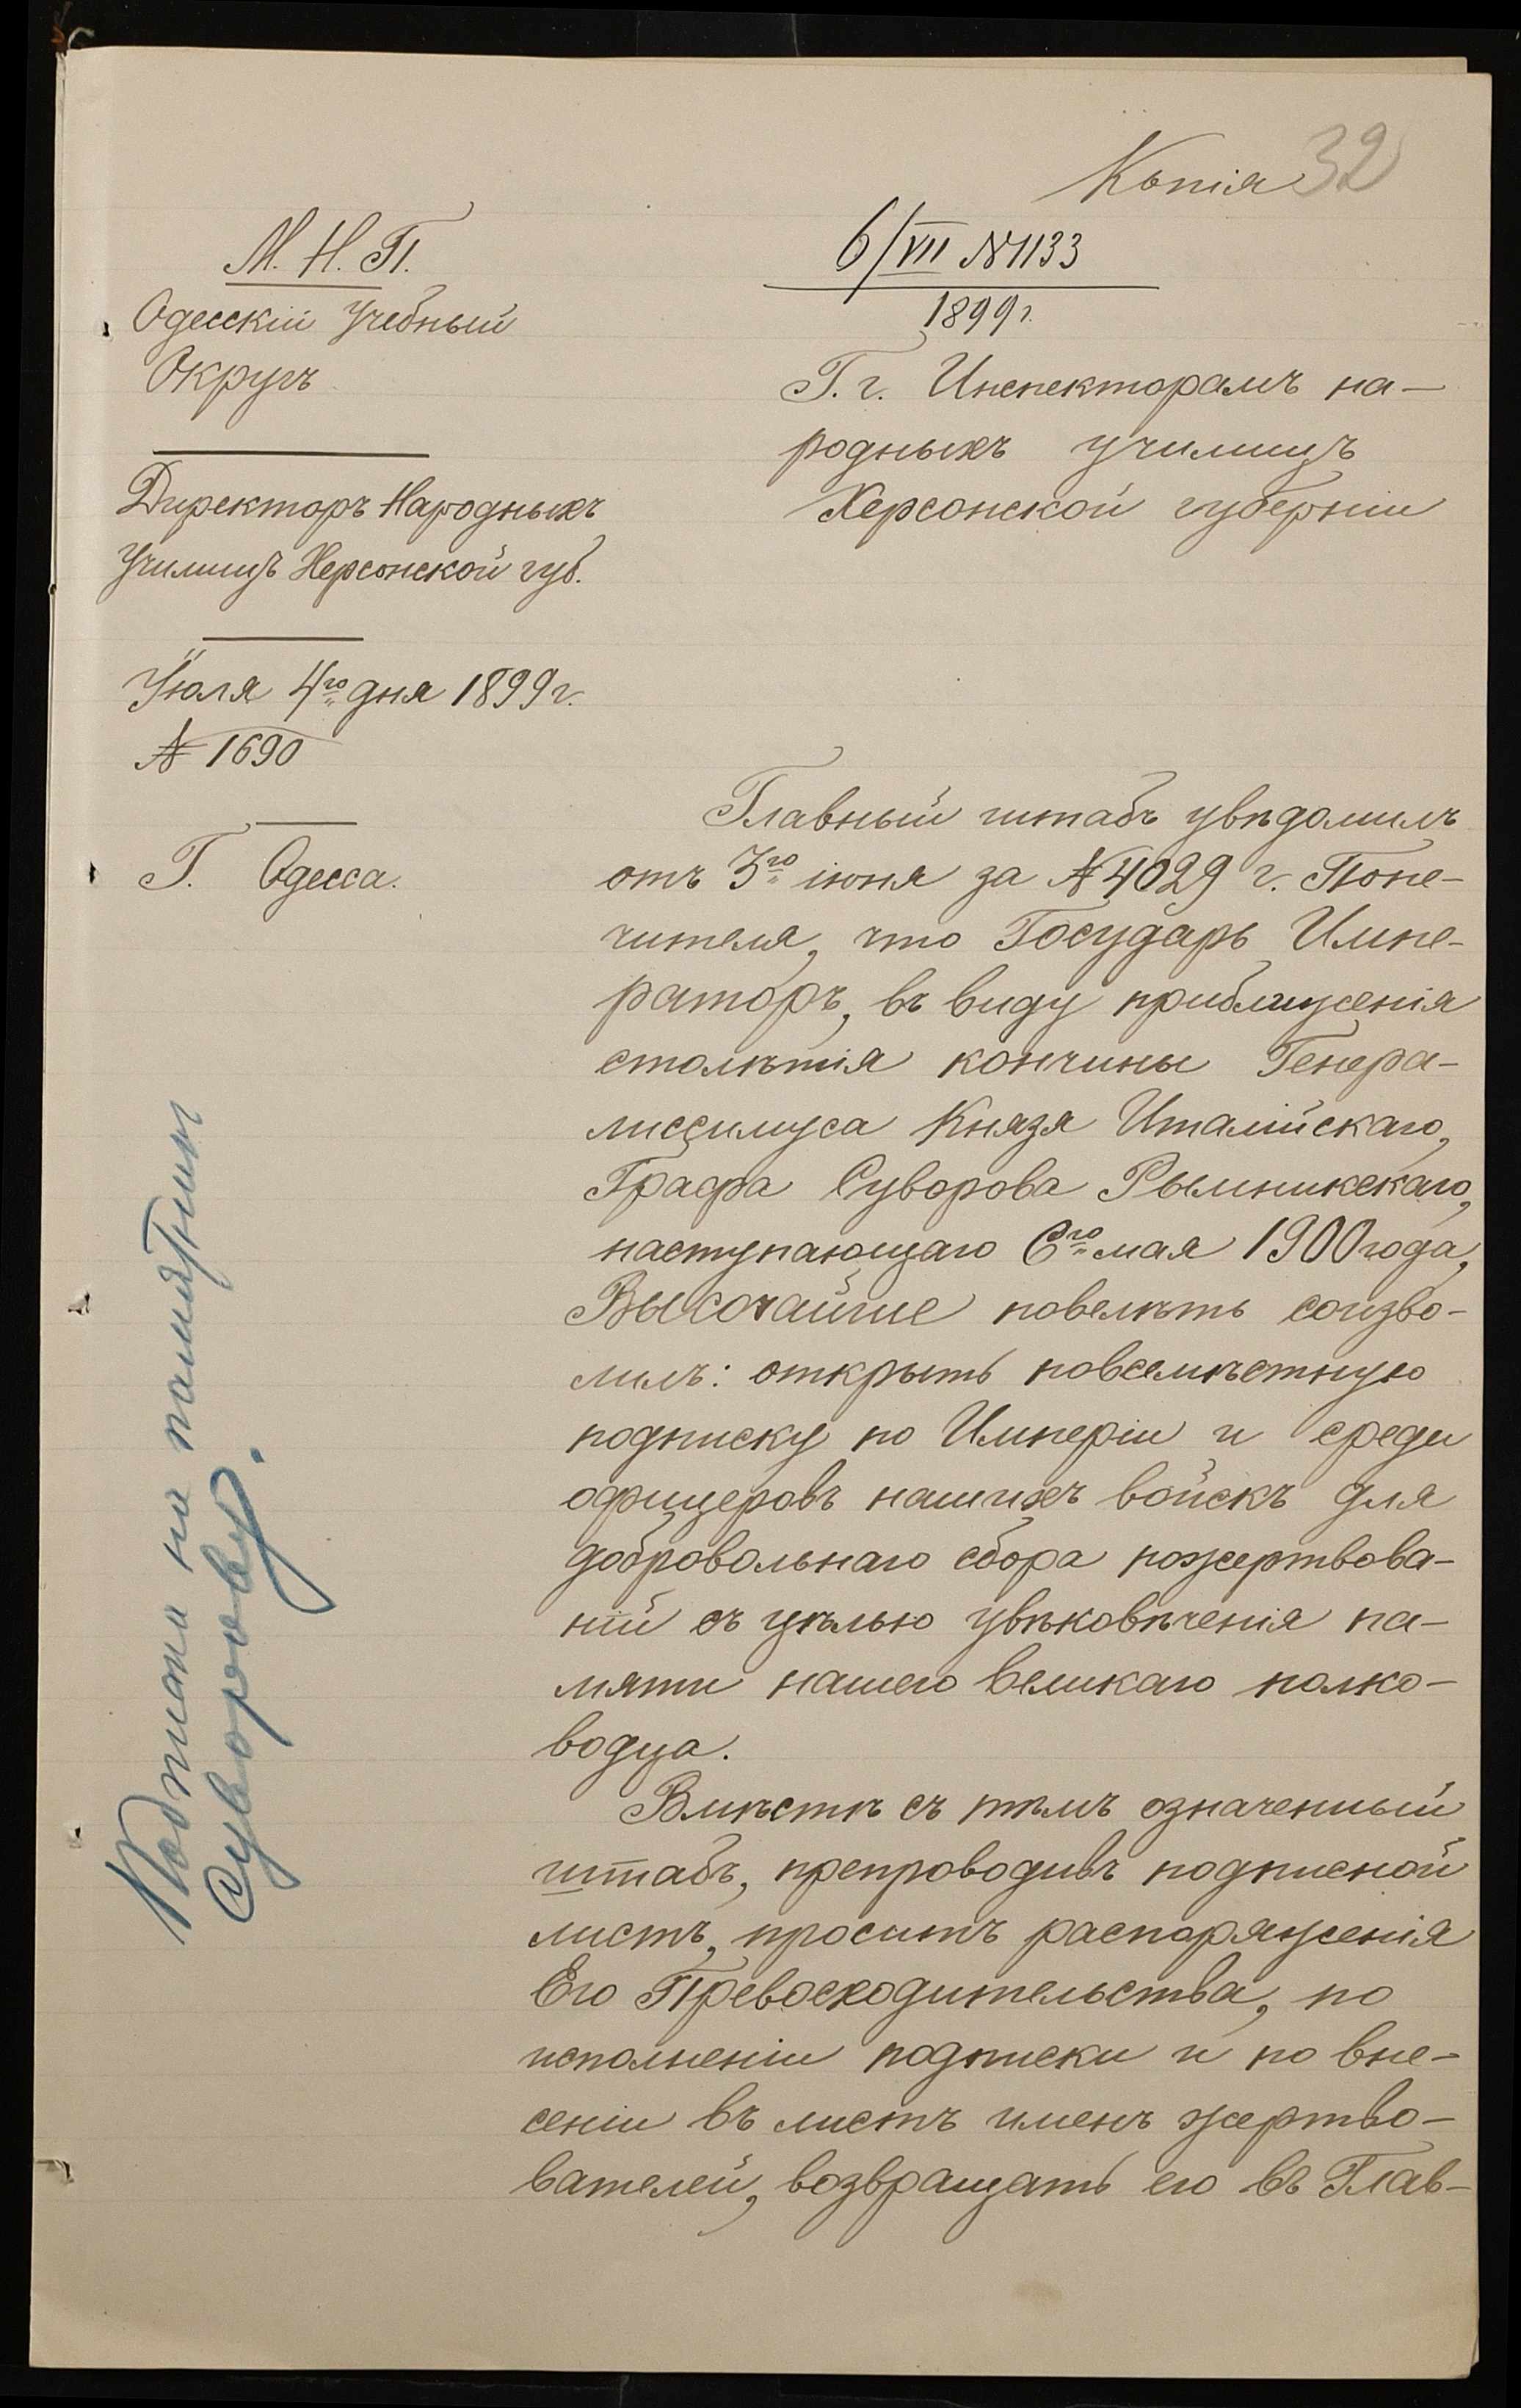 Копія 32
М. Н. П.
Одесскій Учебный
Округъ
Директоръ Народныхъ
Училищъ Херсонской губ.
Іюля 4го дня 1899 г.
№ 1690
Г. Одесса.
6/VII №1133
1899 г.
Г.г. Инспекторамъ на-
родныхъ училищъ
Херсонской губерніи
Главный штабъ увѣдомилъ
отъ 3го іюня за №4029 г. Попе-
чителя, что Государь Импе-
раторъ, въ виду приближенія
столѣтія кончины Генера-
лиссимуса Князя Италійскаго,
Графа Суворова Рымникскаго,
наступающаго 6го мая 1900 года,
Высочайше повелѣть соизво-
лилъ: открыть повсемѣстную
подписку по Имперіи и среди
офицеровъ нашихъ войскъ для
добровольнаго сбора пожертвова-
ній съ цѣлью увѣковѣченія па-
мяти нашего великаго полко-
водца.
Вмѣстѣ съ тѣмъ означенный
штабъ, препроводивъ подписной
листъ, проситъ распоряженія
Его Превосходительства, по
исполненіи подписки и по вне-
сеніи въ листъ именъ жертво-
вателей, возвращать его въ Глав-
Подписка на памятник
Суворову.